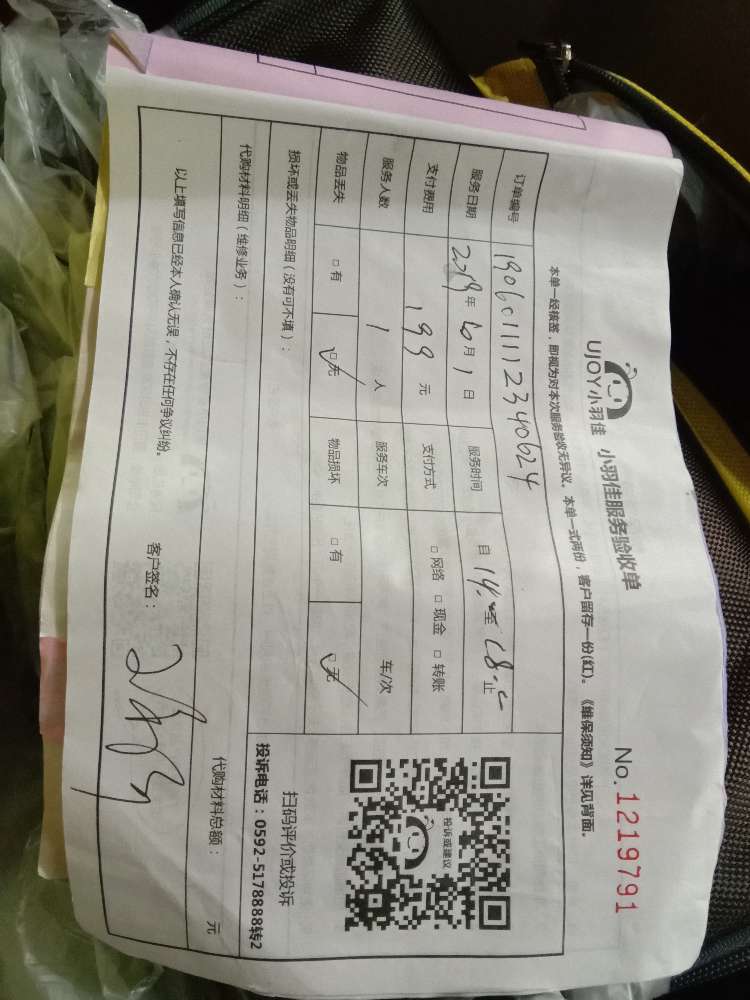 UJOY小羽佳 小羽佳服务验收单 No. 1219791
本单一经核签，即视为对本次服务验收无异议。本单一式两份，客户留存一份(红)。《维保须知》详见背面。
订单编号 190601112340624
服务日期 2019年6月1日 服务时间 自 14: 至 18: 止
支付费用 199元 支付方式 □网络 □现金 □转账
服务人数 1人 服务车次 车/次
物品丢失 □有 □无 物品损坏 □有 □无
损坏或丢失物品明细（没有可不填）：
代购材料明细（维修业务）： 代购材料总额： 元
以上填写信息已经本人确认无误，不存在任何争议纠纷。 客户签名：
投诉或建议
扫码评价或投诉
投诉电话：0592-5178888转2